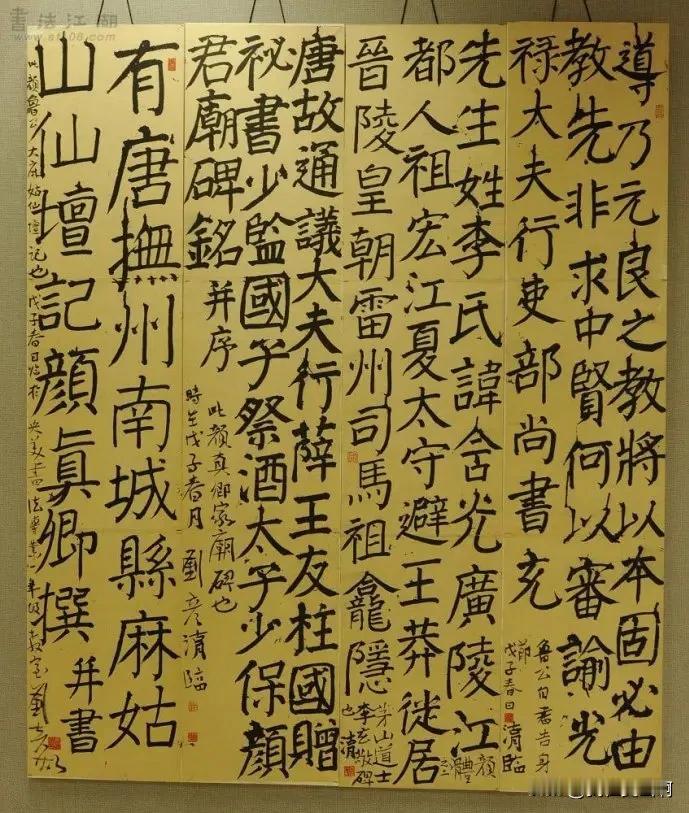 導乃元良之教將以本固必由
教先非求中賢何以審諭光
祿大夫行吏部尚書充
魯公自書告身
節戊子春日清臨
先生姓李氏諱含光廣陵江
都人祖宏江夏太守避王莽徙居
晉陵皇朝雷州司馬祖龕隱
顏體
茅山道士
李玄靖碑
也清
唐故通議大夫行薛王友柱國贈
祕書少監國子祭酒太子少保顏
君廟碑銘并序
此顏真卿家廟碑也
時在戊子春月劉彥清臨
有唐撫州南城縣麻姑
山仙壇記顏真卿撰并書
此顏魯公大麻姑仙壇記也戊子春日臨於
書法江湖